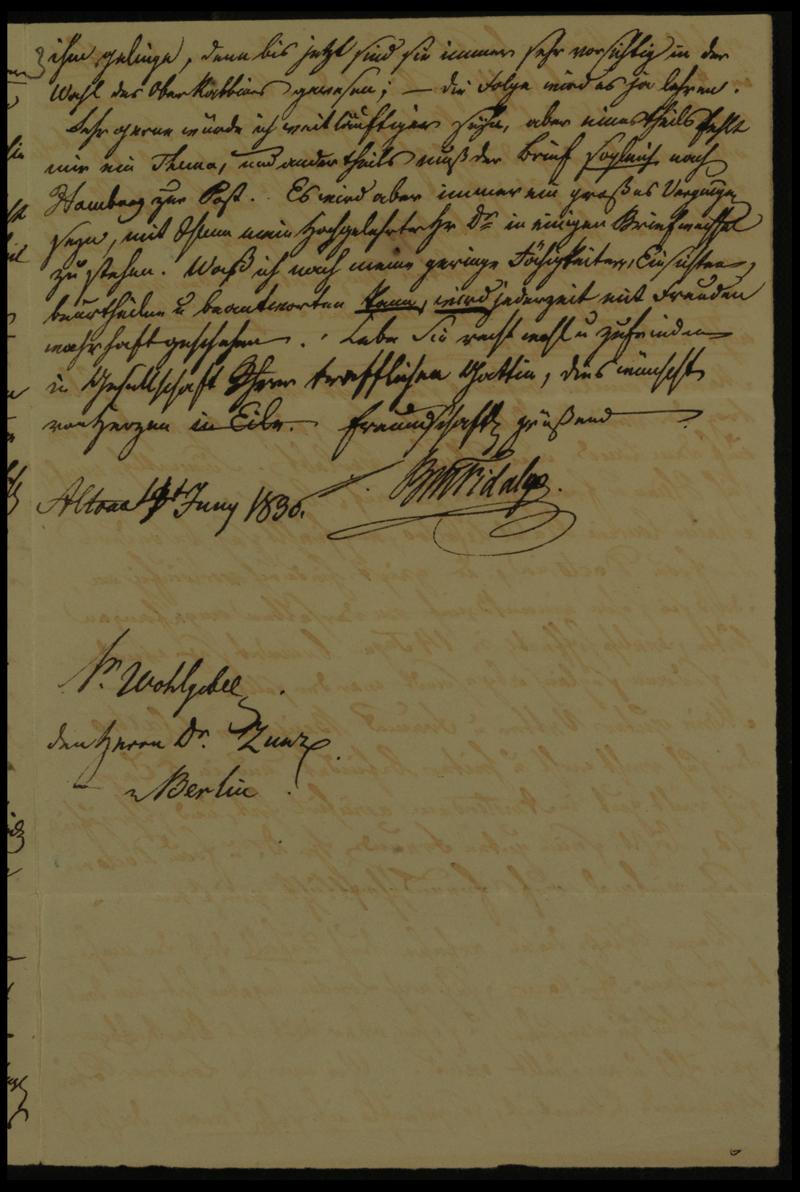 ihm gelinge, denn bis jetzt sind sie immer sehr vorsichtig in der
Wahl des Oberrabbiners gewesen; — die Folge wird es ja lehren.
Sehr gerne würde ich weitläuftiger seyn, aber eines theils fehlt
mir ein Thema, und andertheils muß der Brief sogleich nach
Hamburg zur Post. Es wird aber immer ein großes Vergnügen
seyn, mit Ihnen mein Hochgelehrter Hr Dr. in einigen Briefwechsel
zu stehen. Waß ich nach meine geringe Fähigkeiten, Einsichten,
beurtheilen u beantworten kann, wird jederzeit mit Freuden
wahrhaft geschehen. Lebe Sie recht wohl u zufrieden
in Gesellschaft Ihrer trefflichen Gattin, dies wünscht
von Herzen in Eile. Freundschaftl grüßend
Altona Juny 1830. Fidalgo.
Sr Wohlgeb
den Herrn Dr. Zunz
Berlin